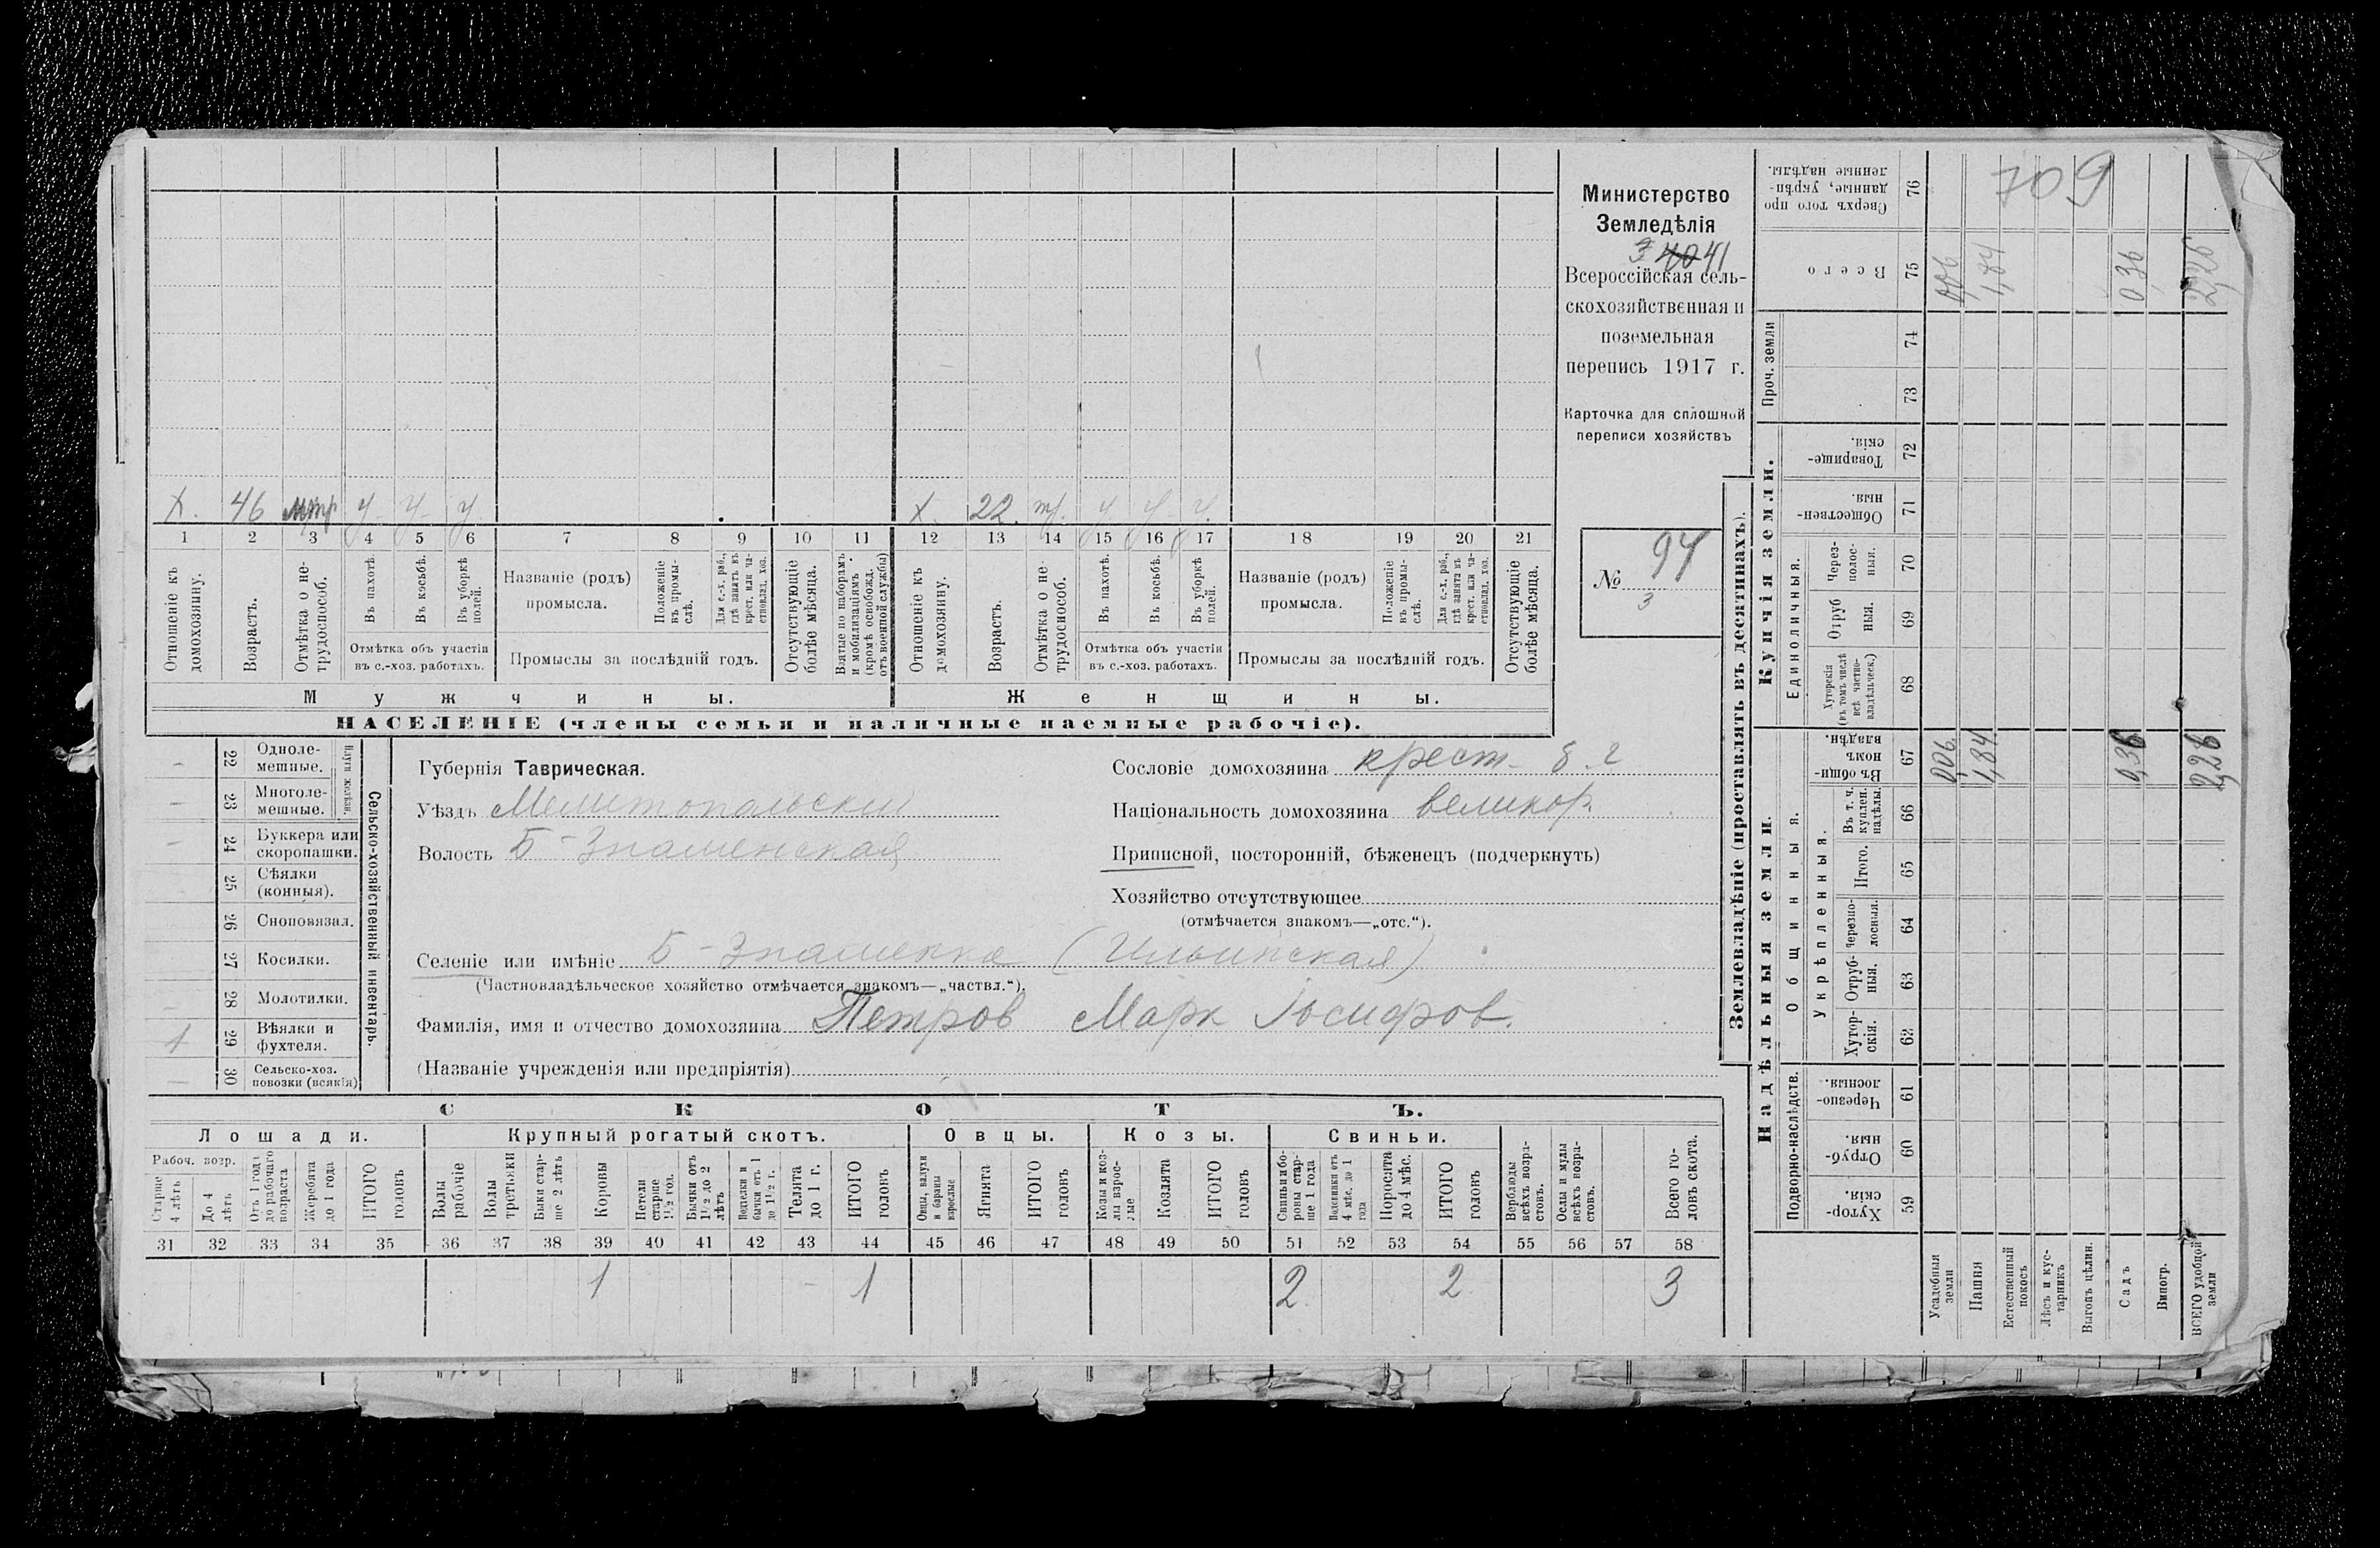 Министерство
Земледѣлія
41
Всероссійская сель-
скохозяйственная и
поземельная
перепись 1917 г.
Карточка для сплошной
переписи хозяйствъ
№ 94
3
709
X. 46 у у у X. 22. у у у
1 2 3 4 5 6 7 8 9 10 11 12 13 14 15 16 17 18 19 20 21
Отношеніе къ домохозяину.
Возрастъ.
Отмѣтка о не-трудоспособ.
Въ пахотѣ.
Въ косьбѣ.
Въ уборкѣ полей.
Отмѣтка объ участіи
въ с.-хоз. работахъ.
Названіе (родъ)
промысла.
Положеніе въ промы-слѣ.
Для с.-х. раб., гдѣ занятъ въ крест. или ча-стновлад. хоз.
Промыслы за послѣдній годъ.
Отсутствующіе болѣе мѣсяца.
Взятые по наборамъ и мобилизаціямъ (кромѣ освобожд. отъ военной службы)
Отношеніе къ домохозяину.
Возрастъ.
Отмѣтка о не-трудоспособ.
Въ пахотѣ.
Въ косьбѣ.
Въ уборкѣ полей.
Отмѣтка объ участіи
въ с.-хоз. работахъ.
Названіе (родъ)
промысла.
Положеніе въ промы-слѣ.
Для с.-х. раб., гдѣ занята въ крест. или ча-стновлад. хоз.
Промыслы за послѣдній годъ.
Отсутствующіе болѣе мѣсяца.
Мужчины. Женщины.
НАСЕЛЕНІЕ (члены семьи и наличные наемные рабочіе).
22 Одноле-мешные.
23 Многоле-мешные.
24 Буккера или скоропашки.
25 Сѣялки (конныя).
26 Сноповязал.
27 Косилки.
28 Молотилки.
1 29 Вѣялки и фухтеля.
30 Сельско-хоз. повозки (всякія)
Сельско-хозяйственный инвентарь.
Губернія Таврическая.
Уѣздъ Мелитопольский
Волость Б-Знаменская
Сословіе домохозяина крест.
Національность домохозяина великор.
Приписной, посторонній, бѣженецъ (подчеркнуть)
Хозяйство отсутствующее
(отмѣчается знакомъ—„отс.“).
Селеніе или имѣніе Б-Знаменка (Ильинская)
(Частновладѣльческое хозяйство отмѣчается знакомъ—„частвл.“).
Фамилія, имя и отчество домохозяина Петров Марк Іосифов.
(Названіе учрежденія или предпріятія)
СКОТЪ.
Лошади. Крупный рогатый скотъ. Овцы. Козы. Свиньи.
Рабоч. возр.
Старше 4 лѣтъ
До 4 лѣтъ
Отъ 1 года до рабочаго возраста
Жеребята до 1 года
ИТОГО головъ
Волы рабочіе
Волы третьяки
Быки стар-ше 2 лѣтъ
Коровы
Нетели старше 1½ год.
Бычки отъ 1½ до 2 лѣтъ
Подтелки и бычки отъ 1 до 1½ г.
Телята до 1 г.
ИТОГО головъ
Овцы, валухи и бараны взрослые
Ягнята
ИТОГО головъ
Козы и коз-лы взрос-лые
Козлята
ИТОГО головъ
Свиньи и бо-ровы стар-ше 1 года
Подсвинки отъ 4 мѣс. до 1 года
Поросята до 4 мѣс.
ИТОГО головъ
Верблюды всѣхъ возра-стовъ.
Ослы и мулы всѣхъ возра-стовъ.
Всего го-ловъ скота.
31 32 33 34 35 36 37 38 39 40 41 42 43 44 45 46 47 48 49 50 51 52 53 54 55 56 57 58
1 1 2 2 3
Землевладѣніе (проставлять въ десятинахъ).
Надѣльныя земли. Купчія земли. Проч. земли
Подворно-наслѣдств.
Общинныя.
Укрѣпленныя.
Единоличныя.
Хутор-скія. 59
Отруб-ныя. 60
Черезпо-лосныя. 61
Хутор-скія. 62
Отруб-ныя. 63
Черезпо-лосныя. 64
Итого. 65
Въ т. ч. куплен. надѣлы. 66
Въ общин-номъ владѣн. 67
Хуторскія (въ томъ числѣ всѣ частно-владѣльческ.) 68
Отруб ныя. 69
Через-полос-ныя. 70
Обществен-ныя. 71
Товарище-скія. 72
73
74
Всего 75
Сверхъ того про данные, укрѣп-ленные надѣлы. 76
Усадебныя земли 0,06 0,06
Пашня 1,84 1,84
Естественный покосъ
Лѣсъ и кус-тарникъ
Выгонъ цѣлин.
Садъ 0,36 0,36
Виногр.
ВСЕГО удобной земли 2,26 2,26